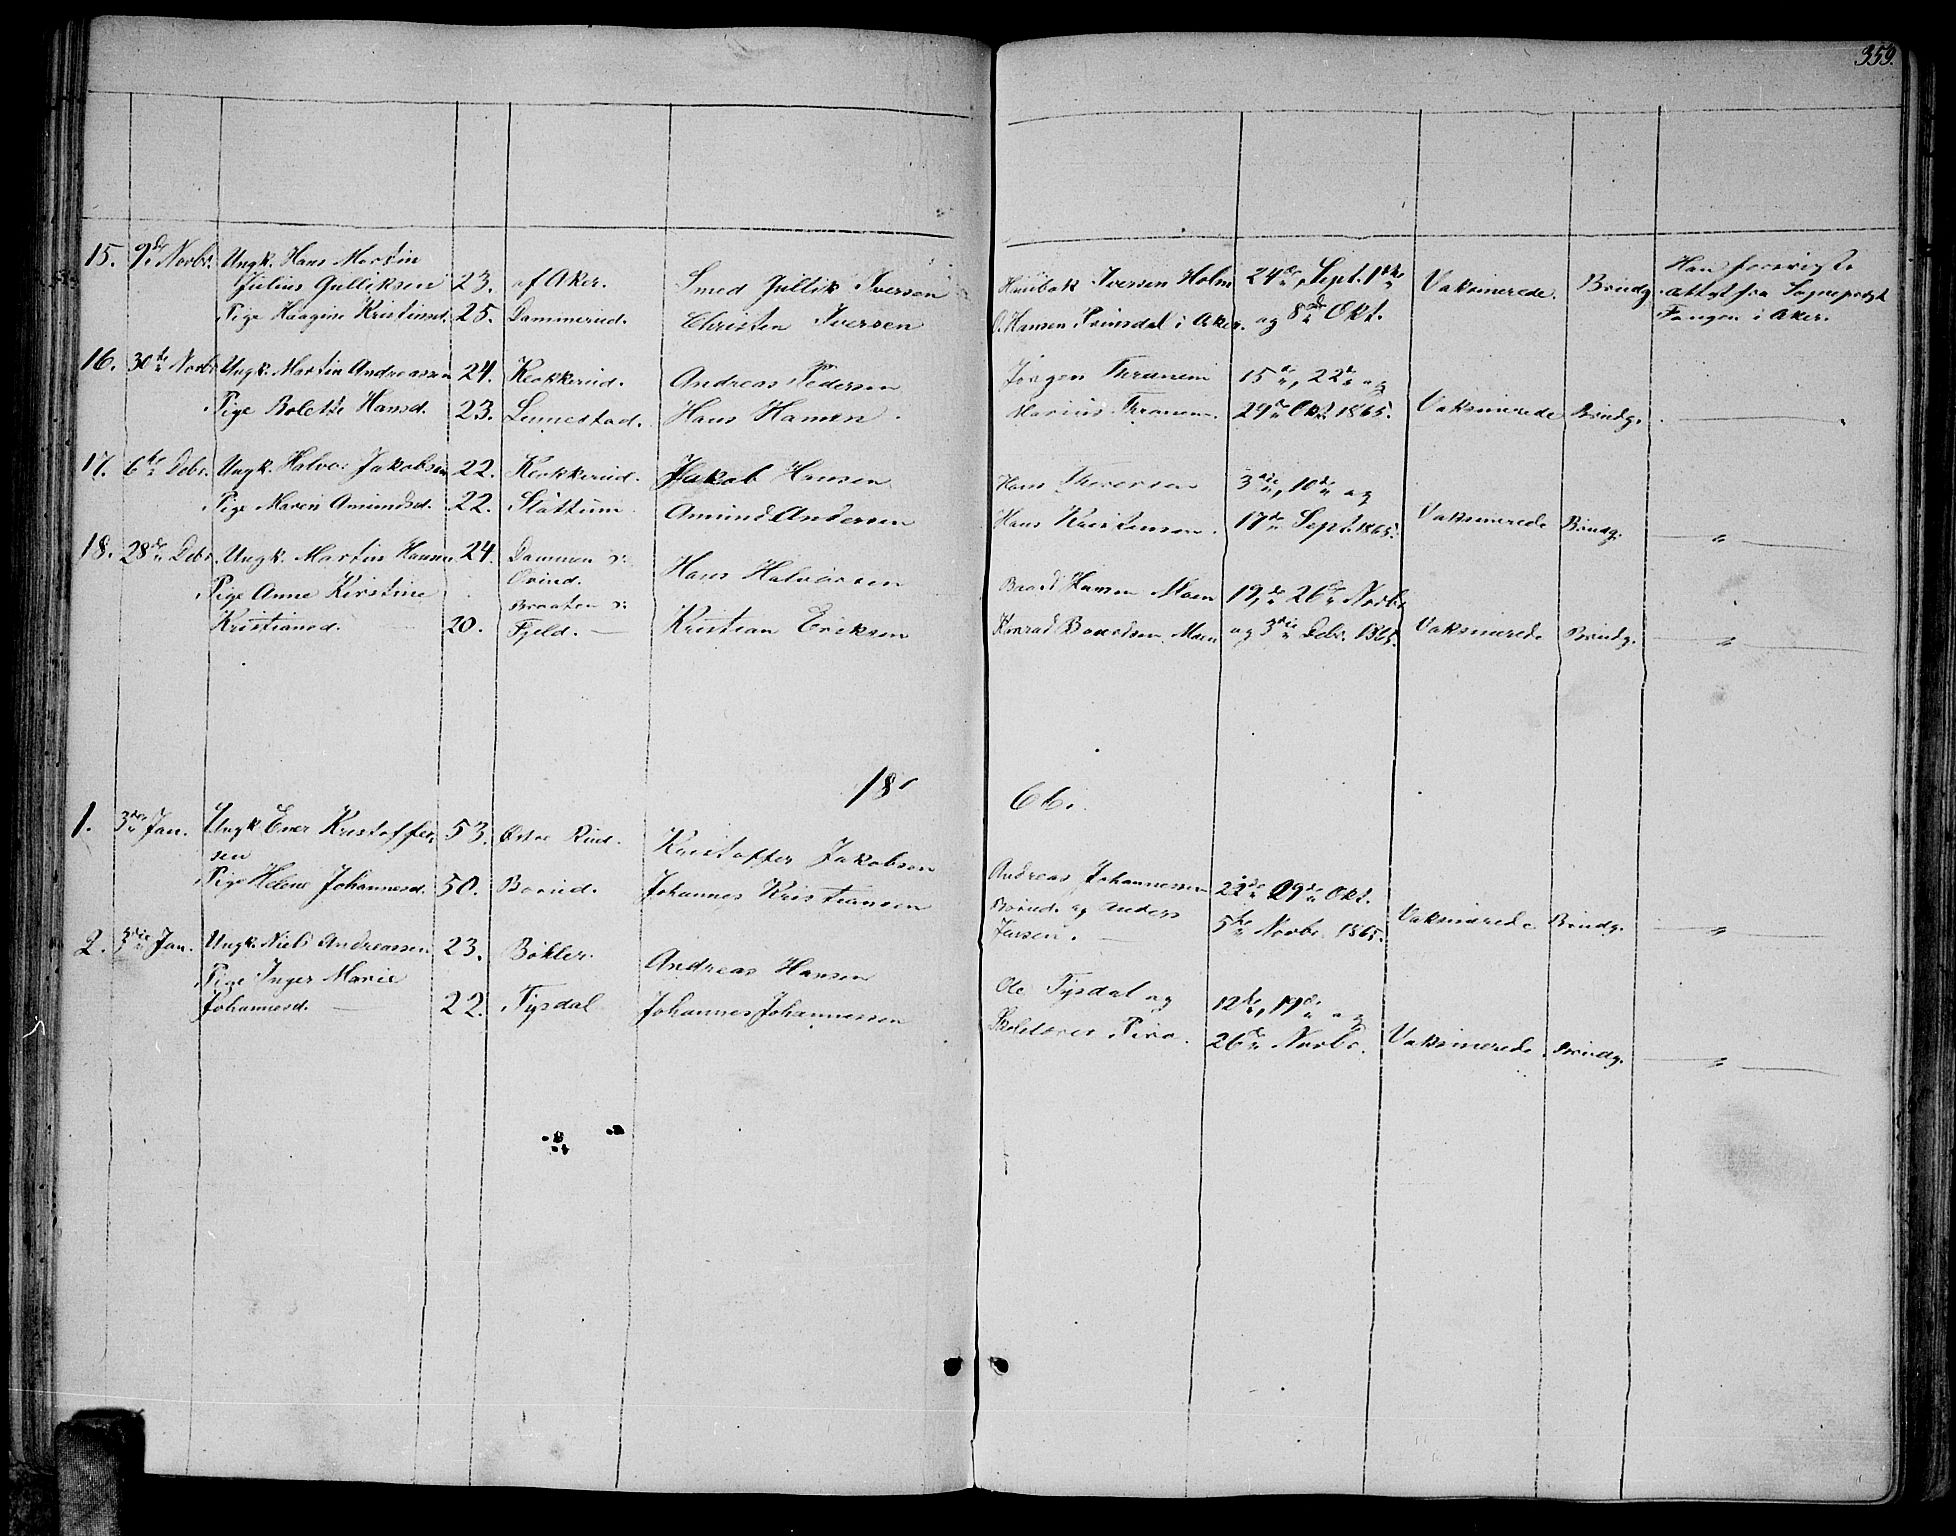 359.
15. 9de Novbr. Ungk. Hans Martin
Julius Gulliksen 23. af Aker. Smed Gullik Iversen
Pige Haagine Kristiansd. 25. Dammerud. Christen Iversen
Iversen Holm 24de Sept. 1ste
O. Hansen Prinsdal i Aker. og 8de Okt.
Vaksinerede. Brudg.
Han foreviste
Attest fra Sogneprest
Fangen i Aker.
16. 30te Novbr. Ungk. Martin Andreassen 24. Krokkerud. Andreas Pedersen
Pige Bolette Hansd. 23. Linnestad. Hans Hansen.
Jørgen Thranem 15de, 22de og
Marius Thranem. 29de Okt. 1865. Vaksinerede Brudg.
17. 6te Debr. Ungk. Halvor Jakobsen 22. Krokkerud. Jakob Hansen
Pige Maren Amundsd. 22. Slattum. Amund Andersen
Hans Thoresen 3die, 10de og
Hans Kristensen. 17de Sept. 1865. Vaksinerede Brudg. "
18. 28de Debr. Ungk. Martin Hansen 24. Dammen Hans Halvorsen
Pige Anne Kirstine Braaten
Kristiansd. 20. Fjeld. Kristian Eriksen
Baard Hansen Moen 19de, 26de Novbr.
Konrad Baardsen Moen og 3die Debr. 1865. Vaksinerede Brudg. "
18 66.
1. 3die Jan. Ungk. Ener Kristoffer 53. Østre Rud. Kristoffer Jakobsen
sen
Pige Helene Johannesd. 50. Borud. Johannes Kristiansen
Andreas Johannessen 22de 29de Okt.
Borud og Anders 5te Novbr. 1865. Vaksinerede Brudg. "
Jensen.
2. 3die Jan. Ungk. Niels Andreassen 23. Bøhler. Andreas Hansen
Pige Inger Marie
Johannesd. 22. Tysdal Johannes Johannessen
Ole Tysdal og 12te, 19de og
26de Novbr. Vaksinerede. Brudg. "